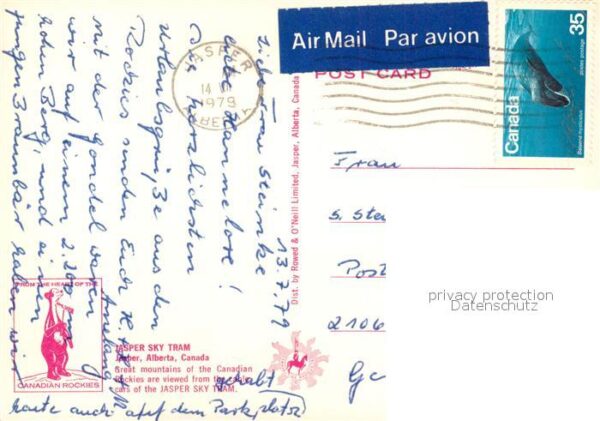 Air Mail Par avion
POST CARD
35
Canada
postes postage
JASPER
14
1979
ALBERTA
13.7.79
Liebe Frau Steinke
Liebe Hannelore!
Die herzlichsten
Urlaubsgrüße aus den
Rockies senden Euch
Mit der Gondel waren
wir auf einem 2.200 m
hohen Berg und einen
jungen Braunbär haben wir
heute auch auf dem Parkplatz
gehabt
Frau
S. Ste
Post
2106
Dist. by Rowed & O'Neill Limited, Jasper, Alberta, Canada
FROM THE HEART OF THE
CANADIAN ROCKIES
JASPER SKY TRAM
Jasper, Alberta, Canada
Great mountains of the Canadian
Rockies are viewed from the
cars of the JASPER SKY TRAM.
privacy protection
Datenschutz